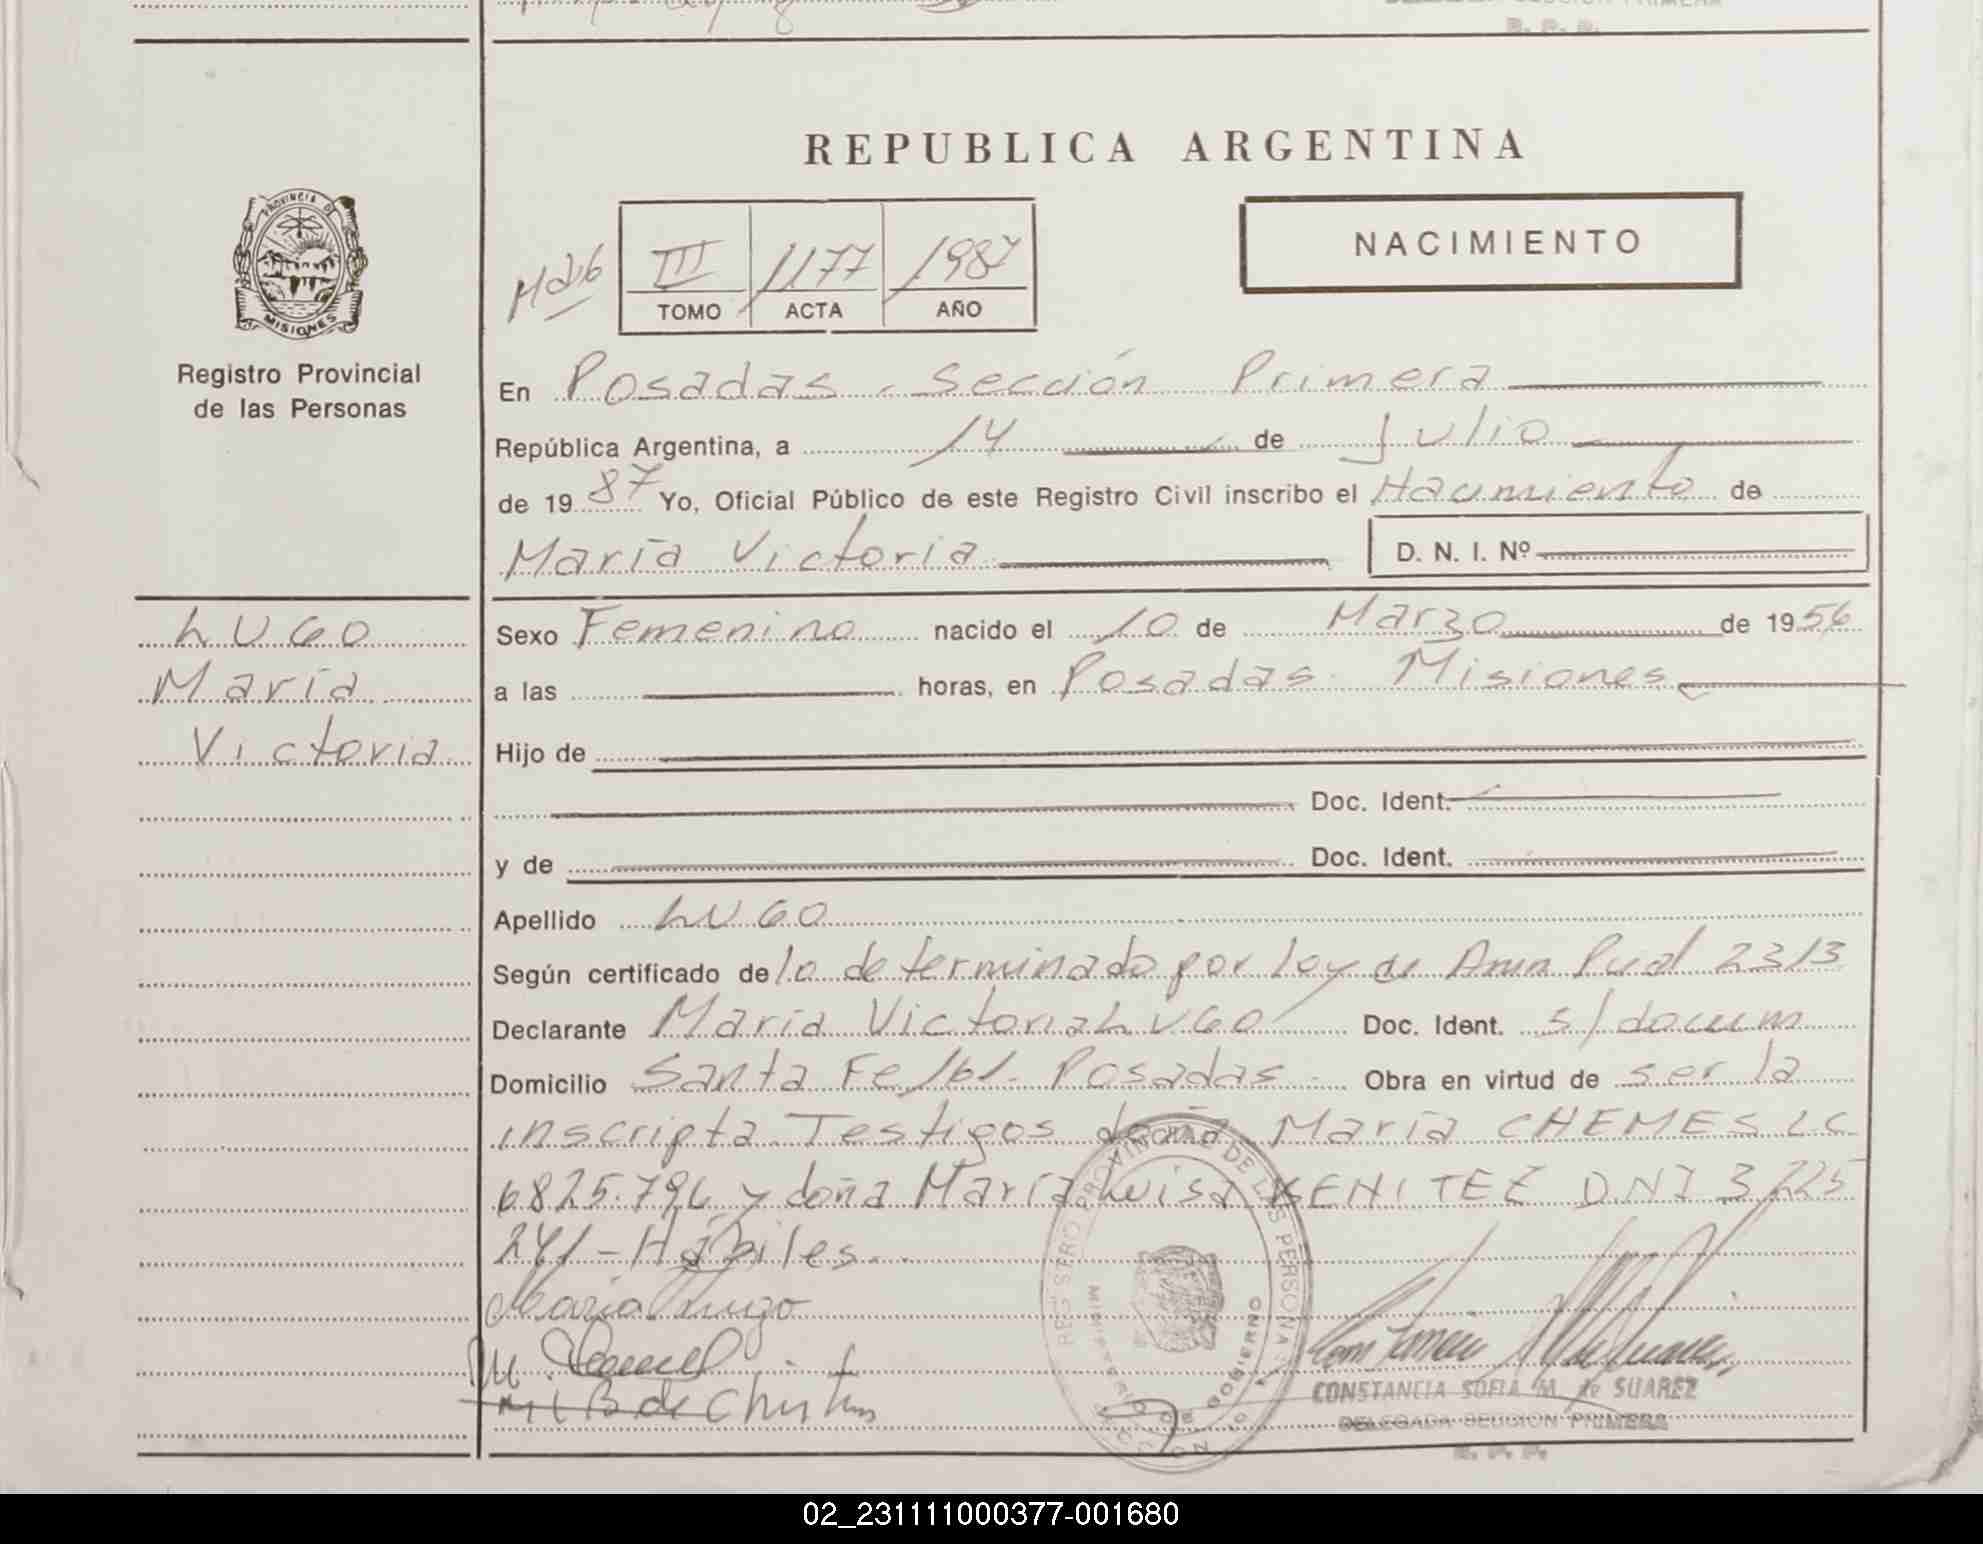 REPUBLICA ARGENTINA
PROVINCIA DE
MISIONES
Registro Provincial
de las Personas
III 1177 1987
TOMO ACTA AÑO
NACIMIENTO
En Posadas - Sección Primera
República Argentina, a 14 de Julio
de 19 87 Yo, Oficial Público de este Registro Civil inscribo el Nacimiento de
María Victoria D. N. I. Nº
LUGO
María
Victoria
Sexo Femenino nacido el 10 de Marzo de 19 56
a las horas, en Posadas Misiones
Hijo de
Doc. Ident.
y de Doc. Ident.
Apellido LUGO
Según certificado de lo determinado por Ley de Amn Pual 2313
Declarante María Victoria LUGO Doc. Ident. s/docum
Domicilio Santa Fe 161 - Posadas - Obra en virtud de ser la
inscripta Testigos doña María CHEMES LC
6825.796 y doña María Luisa BENITEZ DNI 3 225
241 - Hábiles.
María Lugo
REGISTRO PROVINCIAL DE LAS PERSONAS
MINISTERIO DE GOBIERNO
CONSTANCIA SOFIA M. de SUAREZ
DELEGADA SECCION PRIMERA
R. P. P.
02_231111000377-001680